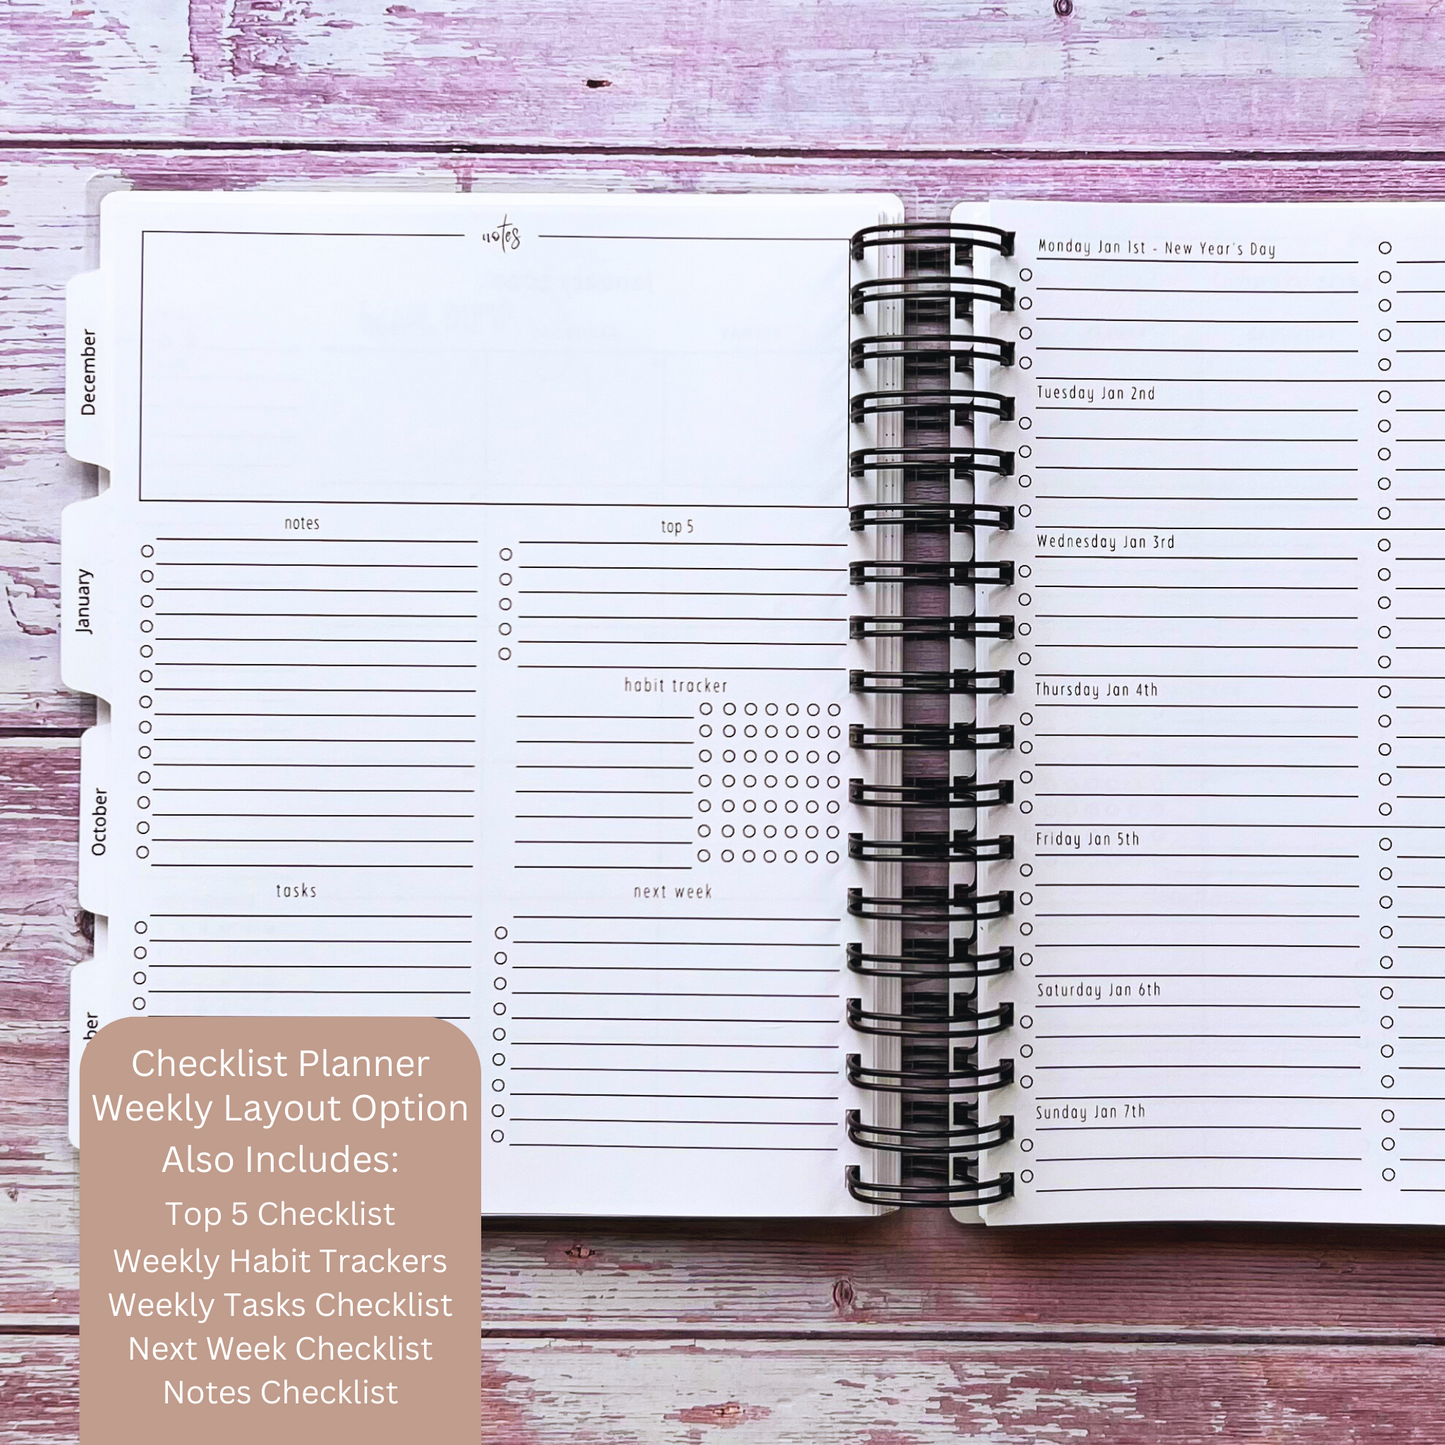 notes
notes
top 5
habit tracker
tasks
next week
December
January
October
ber
Monday Jan 1st - New Year's Day
Tuesday Jan 2nd
Wednesday Jan 3rd
Thursday Jan 4th
Friday Jan 5th
Saturday Jan 6th
Sunday Jan 7th
Checklist Planner
Weekly Layout Option
Also Includes:
Top 5 Checklist
Weekly Habit Trackers
Weekly Tasks Checklist
Next Week Checklist
Notes Checklist